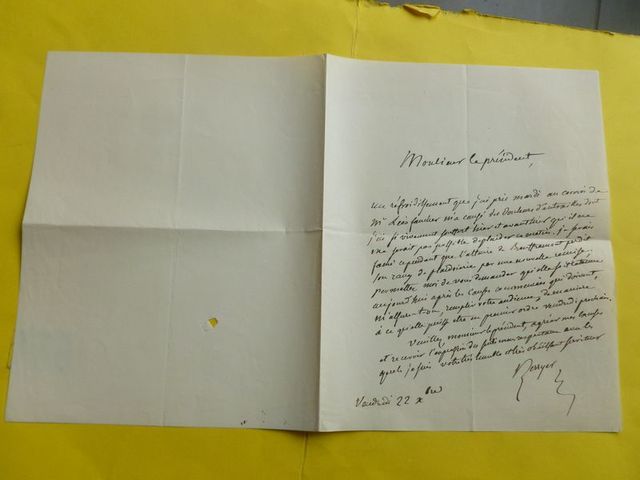 Monsieur le président,
un refroidissement que j'ai pris mardi au convoi de
Mr Léon faucher m'a causé des douleurs d'entrailles dont
j'ai si vivement souffert hier et avant hier qu'il ne
me serait pas possible de plaider ce matin. je serais
faché cependant que l'affaire de perdit
son rang de plaidoirie par une nouvelle remise.
permettez moi de vous demander qu'elle soit retenue
aujourd'hui après les causes commencées qui doivent,
m'assure-t-on, remplir votre audience, de manière
à ce qu'elle puisse etre en premier ordre vendredi prochain.
Veuillez, monsieur le président, agréer mes excuses
et recevoir l'expression des sentimens respectueux avec les
quels je suis votre très humble et très obéissant serviteur
Berryer
Vendredi 22 xbre